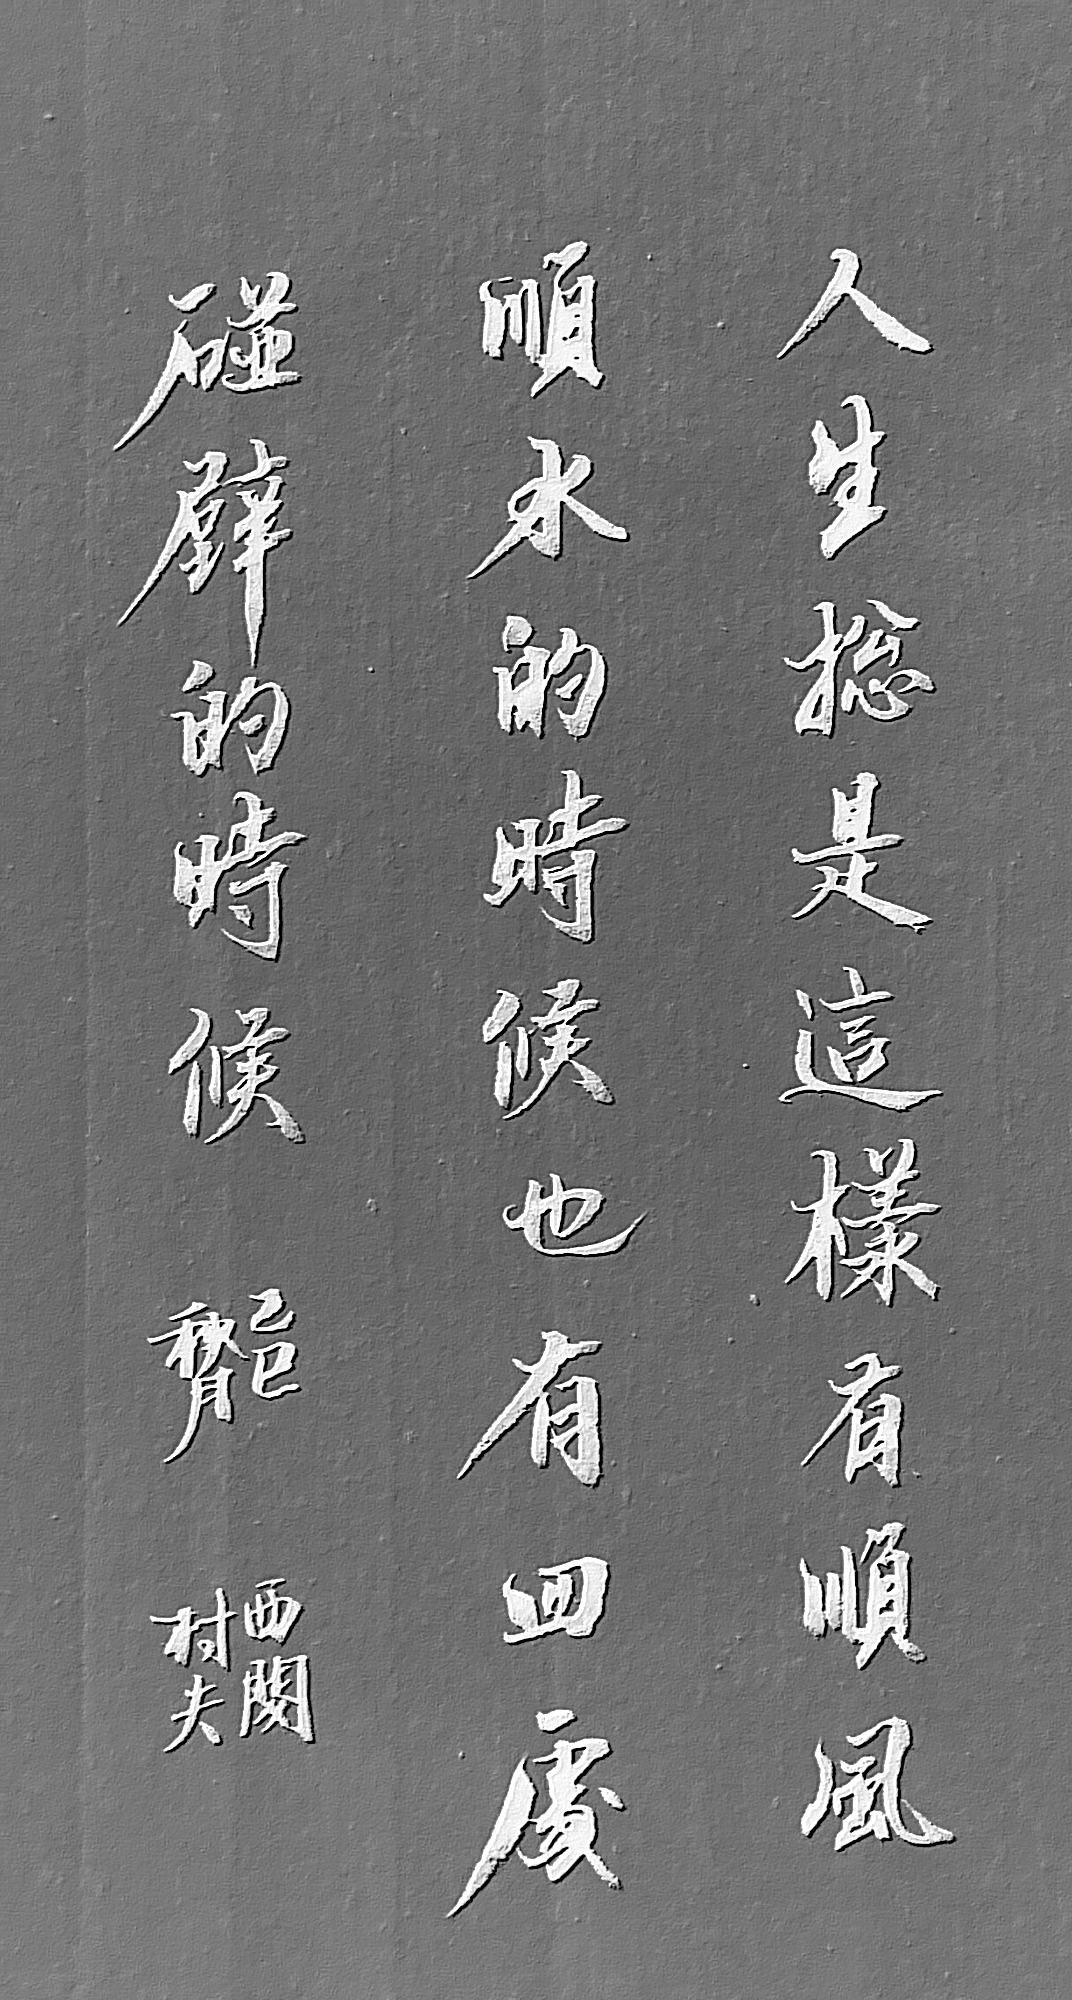 人生捴是這樣有順風
順水的時候也有四處
碰壁的時候
乙巳
秋月
西関
村夫